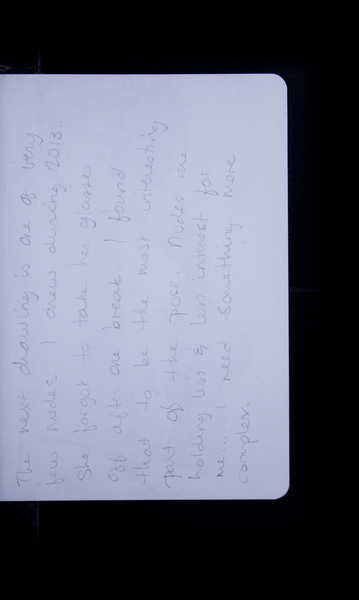 The next drawing is one of very
few nudes I drew during 2013.
She forgot to take her glasses
off after one break. I found
that to be the most interesting
part of the pose. Nudes are
holding less & less interest for
me... I need something more
complex.